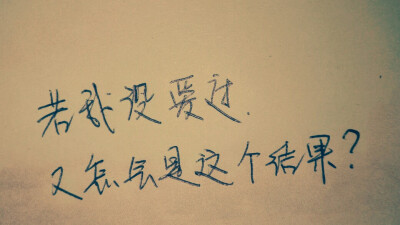 若我没爱过.
又怎会是这个结果?